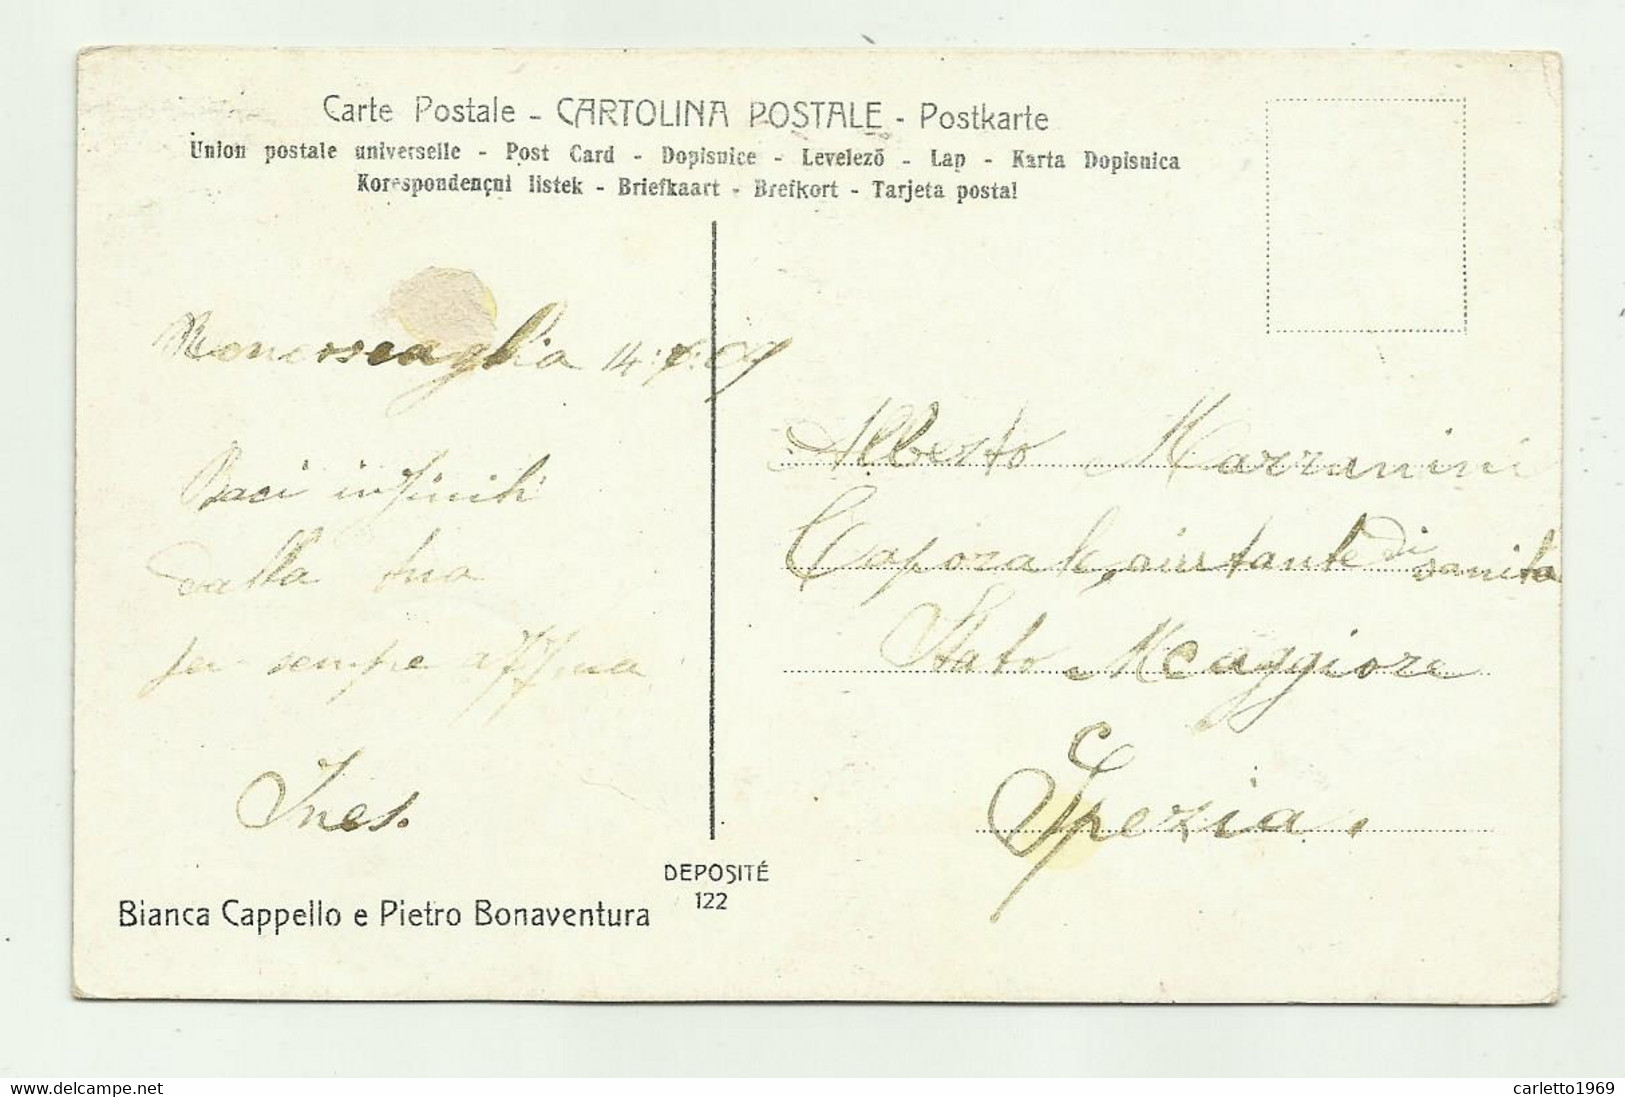 Carte Postale - CARTOLINA POSTALE - Postkarte
Union postale universelle - Post Card - Dopisnice - Levelezõ - Lap - Karta Dopisnica
Korespondençni listek - Briefkaart - Brefkort - Tarjeta postal
14
Baci infiniti
dalla tua
per sempre affma
Ines.
Alberto Marzanini
Caporale, aiutante di sanita
Stato Maggiore
Spezia.
DEPOSITÉ
122
Bianca Cappello e Pietro Bonaventura
www.delcampe.net
carletto1969